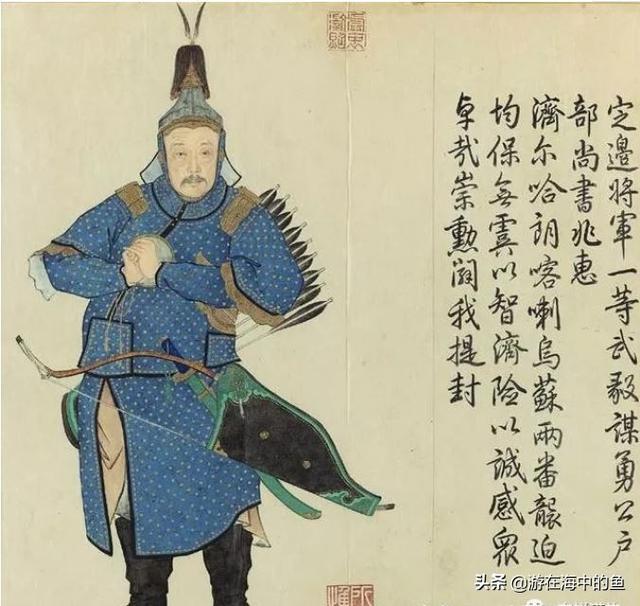 定邊將軍一等武毅謀勇公戶
部尚書兆惠
濟尔哈朗喀喇烏蘇兩番襲迫
均保無虞以智濟險以誠感眾
卓哉崇勳闢我提封
头条 @游在海中的鱼